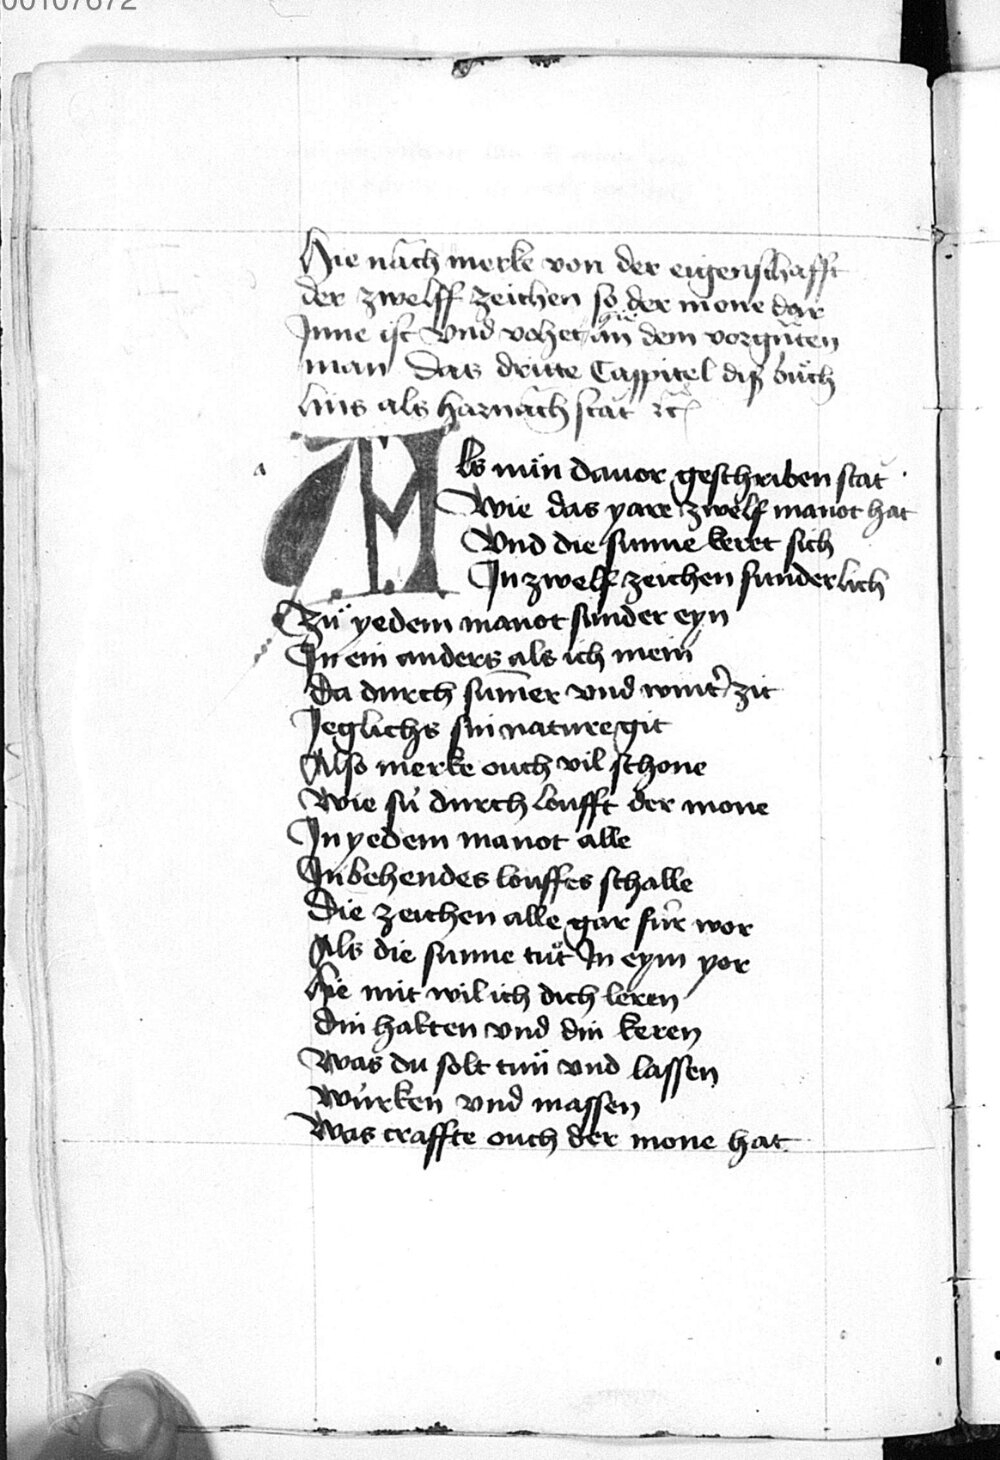 00107672
Hie nach merke von der eigenschafft
der zwelff zeichen so der mone dar
Inne ist vnd vohet an dem vorgůten
man Das dritte Cappitel diß bůch
lins als harnach stat ꝛc
a
Als nůn dauor geschriben stat
Wie das yare zwelf manot hat
Vnd die sunne keret sich
In zwelf zeichen sunderlich
Zů yedem manot sunder eyn
In ein anders als ich mein
Da durch sum̄er vnd wint̕ zit
Jeglichs sin nature git
Also merke ouch vil schone
Wie sú durch loufft der mone
In yedem manot alle
In behendes louffes schalle
Die zeichen alle gar fúr wor
Als die sunne tůt In eym yor
Hie mit wil ich dich leren
Din halten vnd din keren
Was du solt tůn vnd lassen
Wúrken vnd massen
Was craffte ouch der mone hat